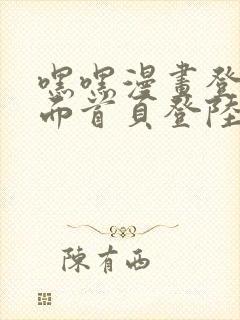 嘿嘿漫畫登
而首頁登陸
陳有西